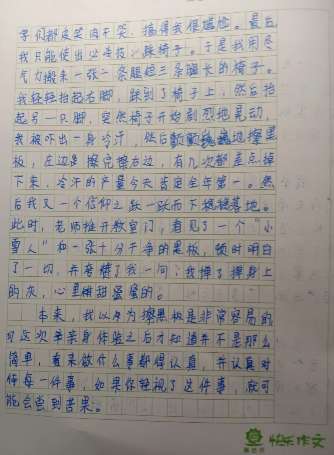 学们都皮笑肉不笑，搞得我很尴尬。最后
我只能使出必杀技：踩椅子。于是我用尽
气力搬来一张一条腿短三条腿长的椅子。
我轻轻抬起右脚，踩到了椅子上，然后抬
起另一只脚，突然椅子开始剧烈地晃动，
我被吓出一身冷汗，然后颤颤巍巍地擦黑
板，左边擦完擦右边，有几次都差点掉
下来，冷汗的产量今天肯定全年第一。然
后我又一个信仰之跃一跃而下稳稳落地。
此时，老师推开教室门，看见了一个“小
雪人”和一张十分干净的黑板，顿时明白
了一切，并夸赞了我一问；我掸了掸身上
的灰，心里甜甜蜜蜜的。
本来，我以为擦黑板是非常容易的
可这次亲亲身体验之后才知道并不是那么
简单，看来做什么事都得认真，并认真对
待每一件事，如果你轻视了这件事，就可
能会尝到苦果。
快乐作文